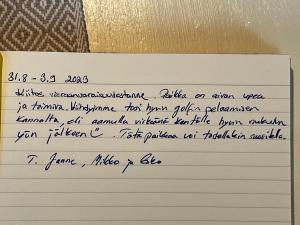 31.8 - 3.9 2023
Kiitos vieraanvaraisuudestanne. Paikka on aivan upea
ja toimiva. Viihdyimme tosi hyvin golfin pelaamisen
kannalta, eli aamulla virkeänä kentälle hyvin nukutun
yön jälkeen. Tätä paikkaa voi todellakin suositella.
T. Janne, Mikko ja